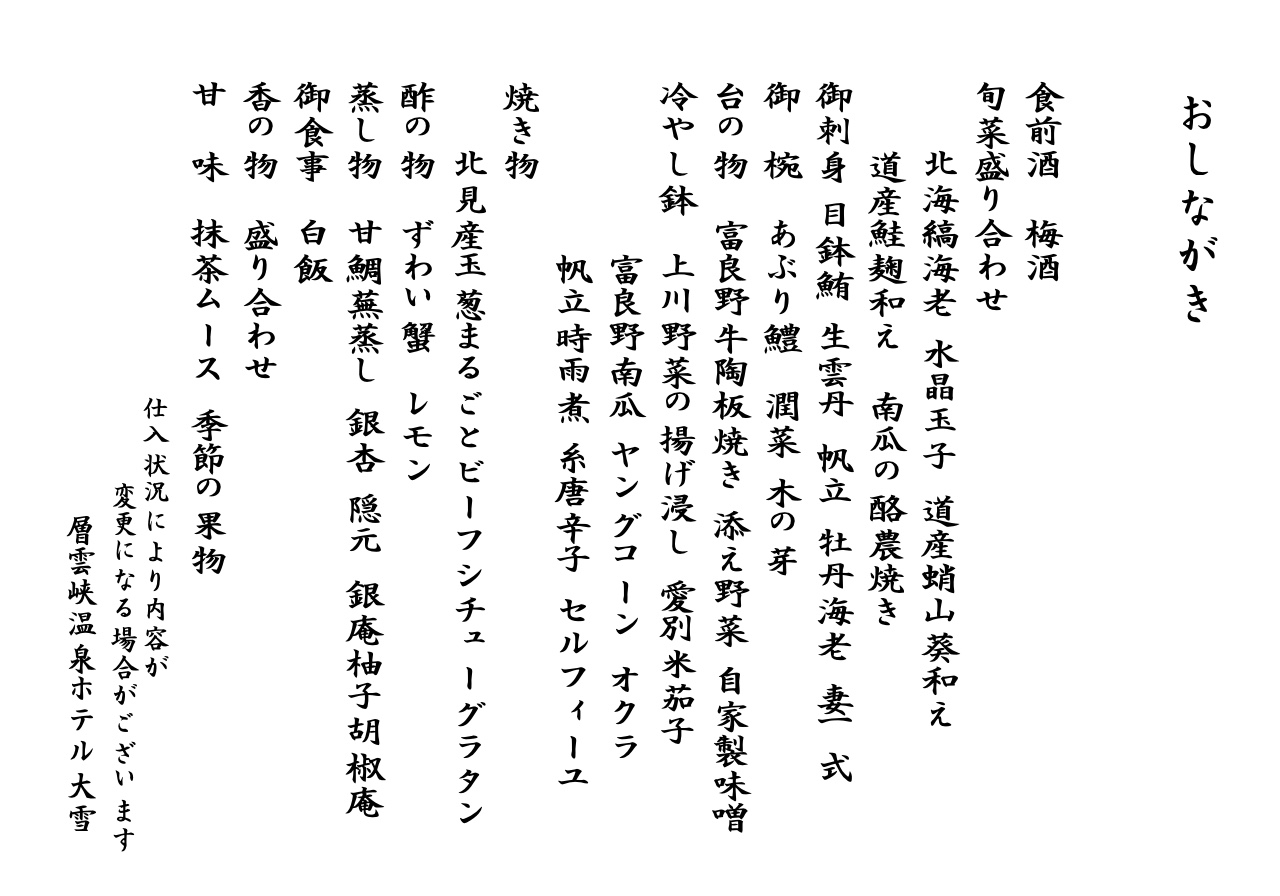 おしながき
食前酒　梅酒
旬菜盛り合わせ
北海縞海老 水晶玉子 道産蛸山葵和え
道産鮭麹和え　南瓜の酪農焼き
御刺身 目鉢鮪 生雲丹 帆立 牡丹海老 妻一式
御　椀　あぶり鱧　潤菜 木の芽
台の物　富良野牛陶板焼き 添え野菜 自家製味噌
冷やし鉢　上川野菜の揚げ浸し 愛別米茄子
富良野南瓜 ヤングコーン オクラ
帆立時雨煮 糸唐辛子 セルフィーユ
焼き物
北見産玉葱まるごとビーフシチューグラタン
酢の物　ずわい蟹　レモン
蒸し物　甘鯛蕪蒸し 銀杏 隠元 銀庵柚子胡椒庵
御食事　白飯
香の物　盛り合わせ
甘　味　抹茶ムース 季節の果物
仕入状況により内容が
変更になる場合がございます
層雲峡温泉ホテル大雪